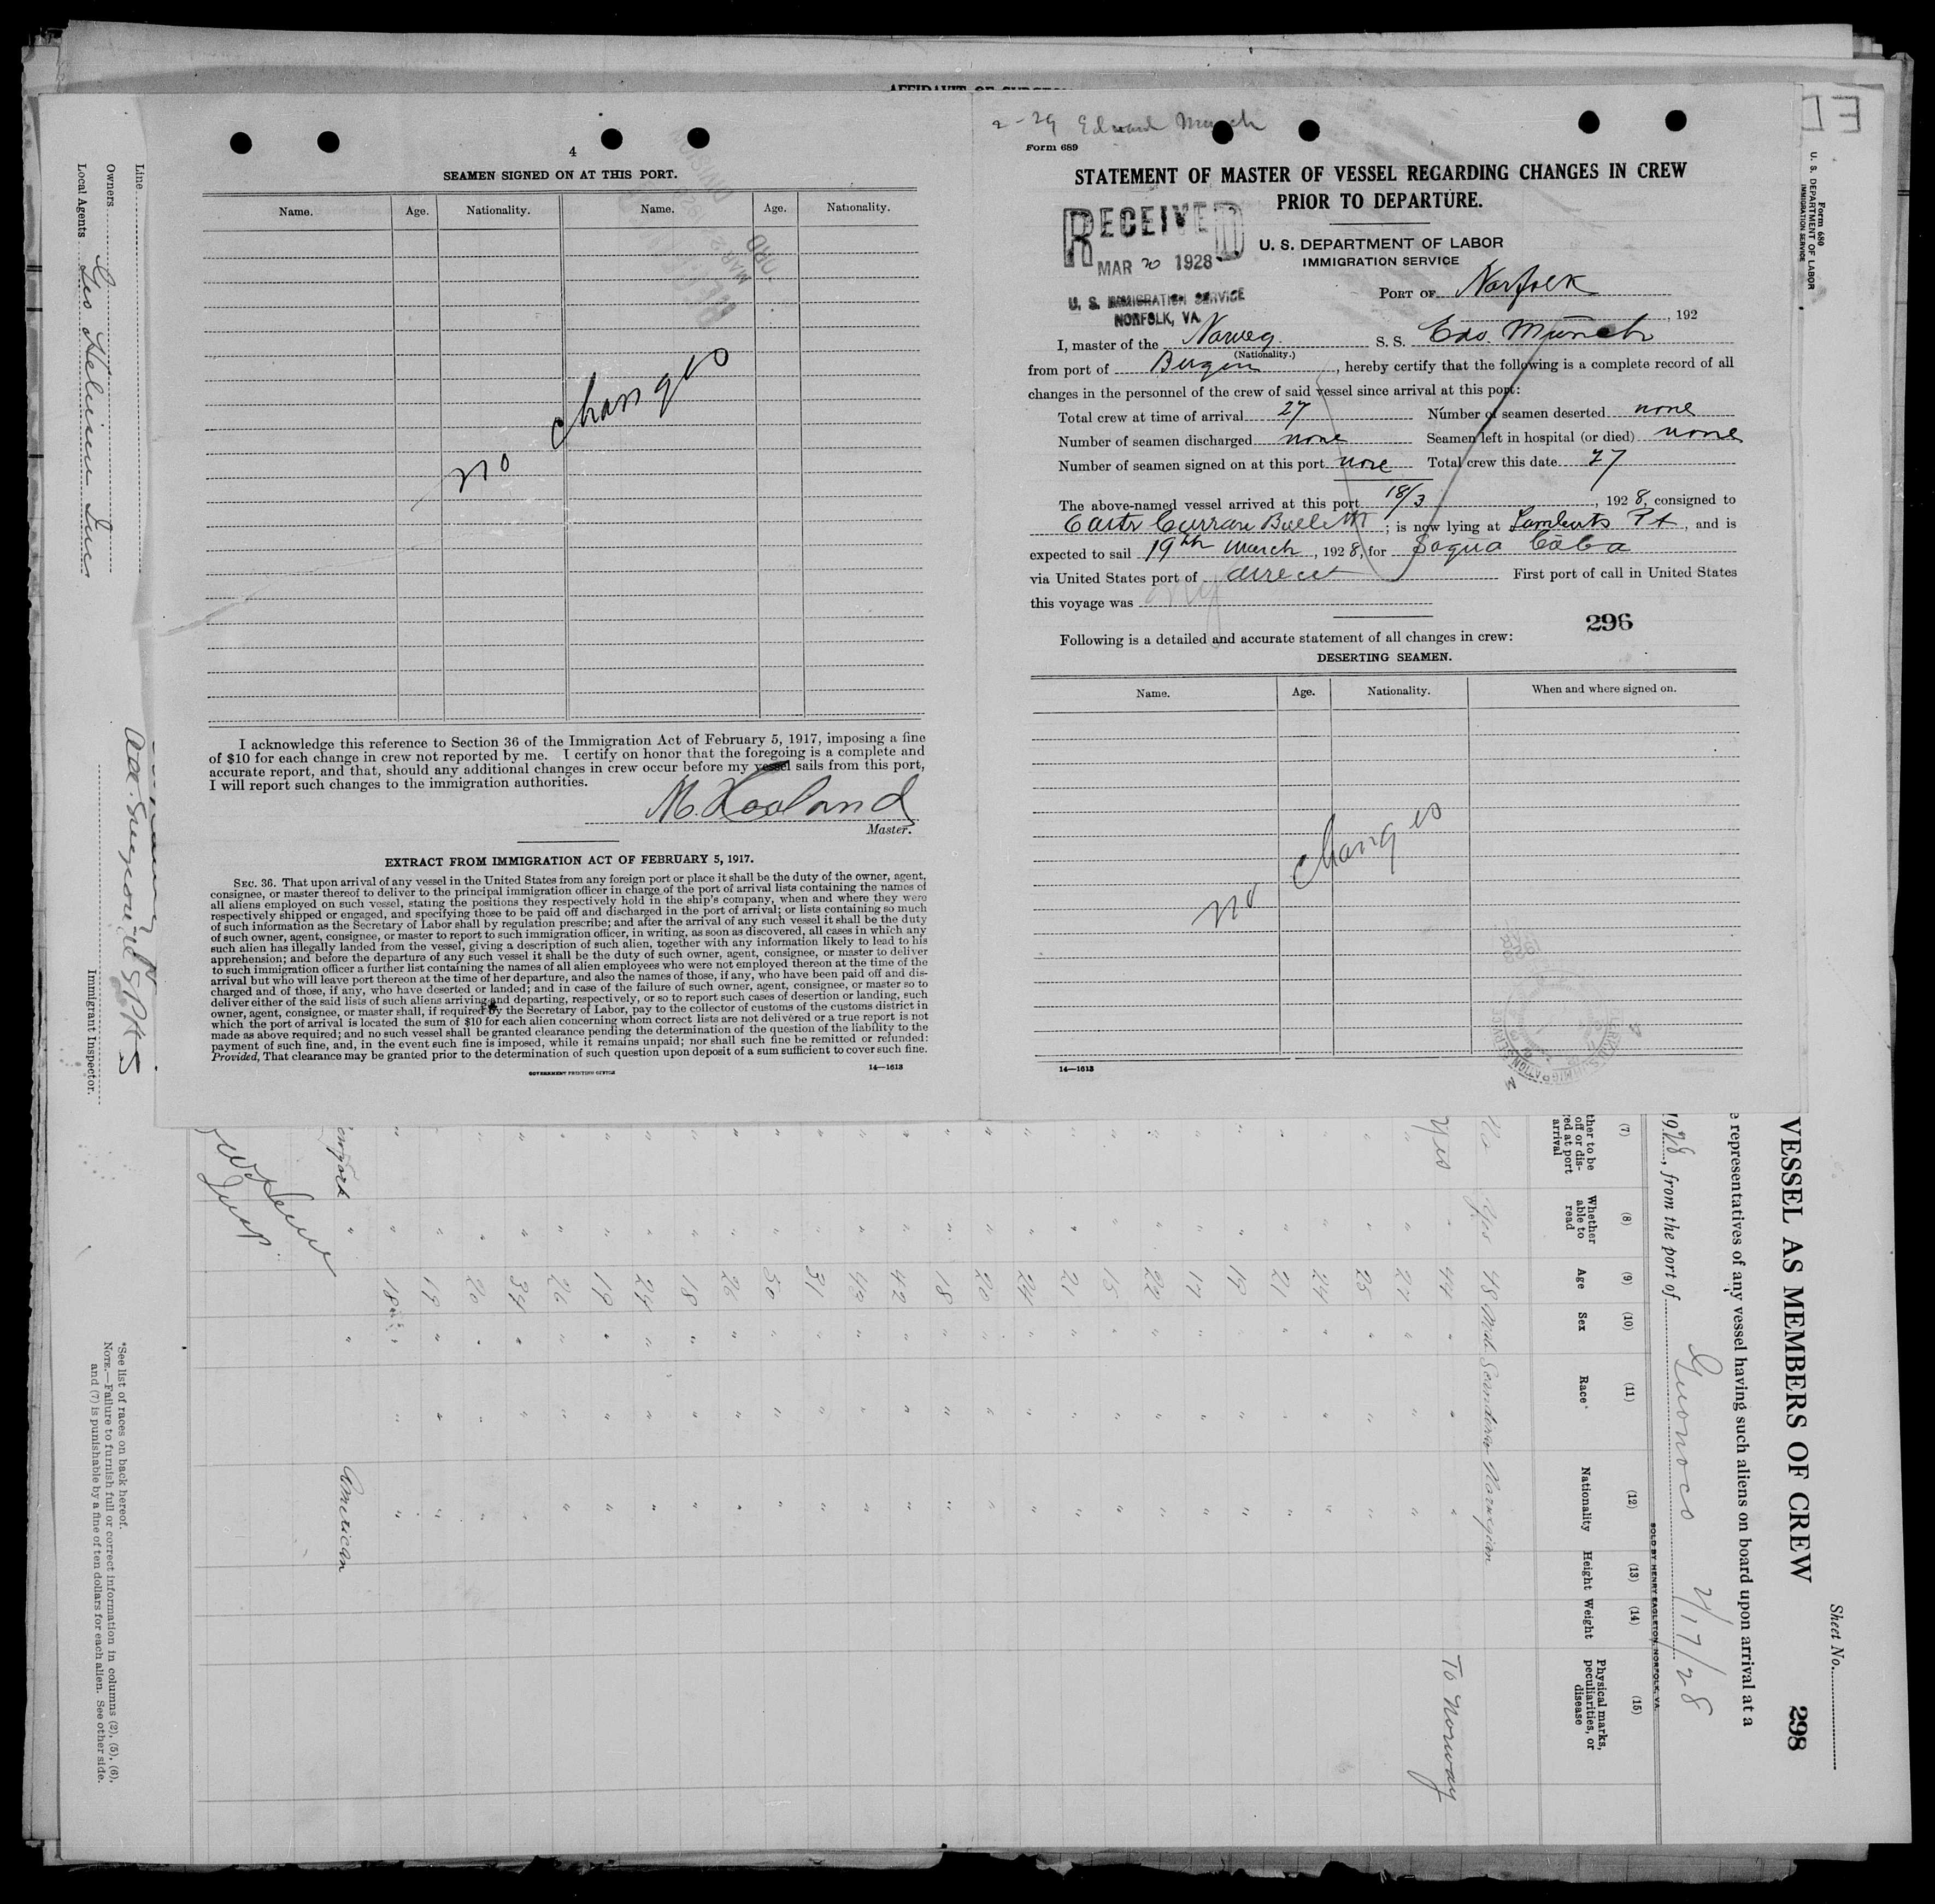 AFFIDAVIT OF SURGEON
4
SEAMEN SIGNED ON AT THIS PORT.
Name. Age. Nationality. Name. Age. Nationality.
no changes
I acknowledge this reference to Section 36 of the Immigration Act of February 5, 1917, imposing a fine
of $10 for each change in crew not reported by me. I certify on honor that the foregoing is a complete and
accurate report, and that, should any additional changes in crew occur before my vessel sails from this port,
I will report such changes to the immigration authorities.
Master.
EXTRACT FROM IMMIGRATION ACT OF FEBRUARY 5, 1917.
SEC. 36. That upon arrival of any vessel in the United States from any foreign port or place it shall be the duty of the owner, agent,
consignee, or master thereof to deliver to the principal immigration officer in charge of the port of arrival lists containing the names of
all aliens employed on such vessel, stating the positions they respectively hold in the ship's company, when and where they were
respectively shipped or engaged, and specifying those to be paid off and discharged in the port of arrival; or lists containing so much
of such information as the Secretary of Labor shall by regulation prescribe; and after the arrival of any such vessel it shall be the duty
of such owner, agent, consignee, or master to report to such immigration officer, in writing, as soon as discovered, all cases in which any
such alien has illegally landed from the vessel, giving a description of such alien, together with any information likely to lead to his
apprehension; and before the departure of any such vessel it shall be the duty of such owner, agent, consignee, or master to deliver
to such immigration officer a further list containing the names of all alien employees who were not employed thereon at the time of the
arrival but who will leave port thereon at the time of her departure, and also the names of those, if any, who have been paid off and dis-
charged and of those, if any, who have deserted or landed; and in case of the failure of such owner, agent, consignee, or master so to
deliver either of the said lists of such aliens arriving and departing, respectively, or so to report such cases of desertion or landing, such
owner, agent, consignee, or master shall, if required by the Secretary of Labor, pay to the collector of customs of the customs district in
which the port of arrival is located the sum of $10 for each alien concerning whom correct lists are not delivered or a true report is not
made as above required; and no such vessel shall be granted clearance pending the determination of the question of the liability to the
payment of such fine, and, in the event such fine is imposed, while it remains unpaid; nor shall such fine be remitted or refunded:
Provided, That clearance may be granted prior to the determination of such question upon deposit of a sum sufficient to cover such fine.
GOVERNMENT PRINTING OFFICE
14—1613
2-29 Edward Munch
Form 689
STATEMENT OF MASTER OF VESSEL REGARDING CHANGES IN CREW
PRIOR TO DEPARTURE.
RECEIVED
MAR 20 1928
U. S. IMMIGRATION SERVICE
NORFOLK, VA.
U. S. DEPARTMENT OF LABOR
IMMIGRATION SERVICE
PORT OF Norfolk
, 192
I, master of the Norweg. S. S. Edv. Münch
(Nationality.)
from port of Bergen, hereby certify that the following is a complete record of all
changes in the personnel of the crew of said vessel since arrival at this port:
Total crew at time of arrival 27 Number of seamen deserted none
Number of seamen discharged none Seamen left in hospital (or died) none
Number of seamen signed on at this port none Total crew this date 27
The above-named vessel arrived at this port 18/3, 1928, consigned to
Curran Bullett; is now lying at Lamberts Pt, and is
expected to sail 19th March, 1928, for Sagua Cuba
via United States port of direct First port of call in United States
this voyage was
296
Following is a detailed and accurate statement of all changes in crew:
DESERTING SEAMEN.
Name. Age. Nationality. When and where signed on.
no changes
14—1613
Line
Owners
Local Agents
Immigrant Inspector.
Form 680
U. S. DEPARTMENT OF LABOR
IMMIGRATION SERVICE
Sheet No.
298
VESSEL AS MEMBERS OF CREW
e representatives of any vessel having such aliens on board upon arrival at a
1928, from the port of 2/17/28
SOLD BY HENRY EAGLETON, NORFOLK, VA.
(7) (8) (9) (10) (11) (12) (13) (14) (15)
ther to be off or dis- ed at port arrival
Whether able to read
Age
Sex
Race*
Nationality
Height
Weight
Physical marks, peculiarities, or disease
No Yes 48 Norwegian
Yes " 44 " " " To Norway
" " 27 " " "
" 25 " " "
" 24 " " "
" 21 " " "
" 19 " " "
" 17 " " "
" 22 " " "
" 15 " " "
" 21 " " "
" 24 " " "
" 20 " " "
" 18 " " "
" 42 " " "
" 43 " " "
" 31 " " "
" 50 " " "
" 26 " " "
" 18 " " "
" 24 " " "
" 19 " " "
" 26 " " "
" 34 " " "
" 20 " " "
" 19 " " "
" 18 " " "
" " American
*See list of races on back hereof.
NOTE.—Failure to furnish full or correct information in columns (2), (5), (6),
and (7) is punishable by a fine of ten dollars for each alien. See other side.